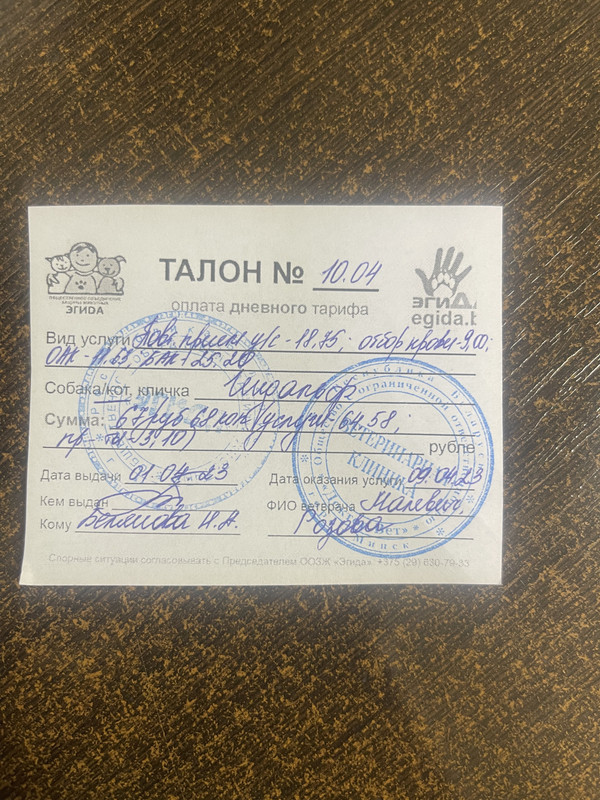 ОБЩЕСТВЕННОЕ ОБЪЕДИНЕНИЕ
ЗАЩИТЫ ЖИВОТНЫХ
ЭГИДА
ТАЛОН № 10.04
оплата дневного тарифа
эгиД
egida.b
Вид услуги Повт. прием у/с - 18,75; отбор крови - 9,00;
ОАК - 11,63 БАК - 25,20
Собака/кот, кличка
Сумма: 67 руб 68 коп (услуги: 64,58;
пр-ты - 3,10) рубле
Дата выдачи 01.04.23
Дата оказания услуги 09.04.23
Кем выдан
ФИО ветеринара Малевич,
Кому
Розова
ВЕТЕРИНАРНАЯ
КЛИНИКА
Минск
Спорные ситуации согласовывать с Председателем ООЗЖ «Эгида» +375 (29) 630-79-33